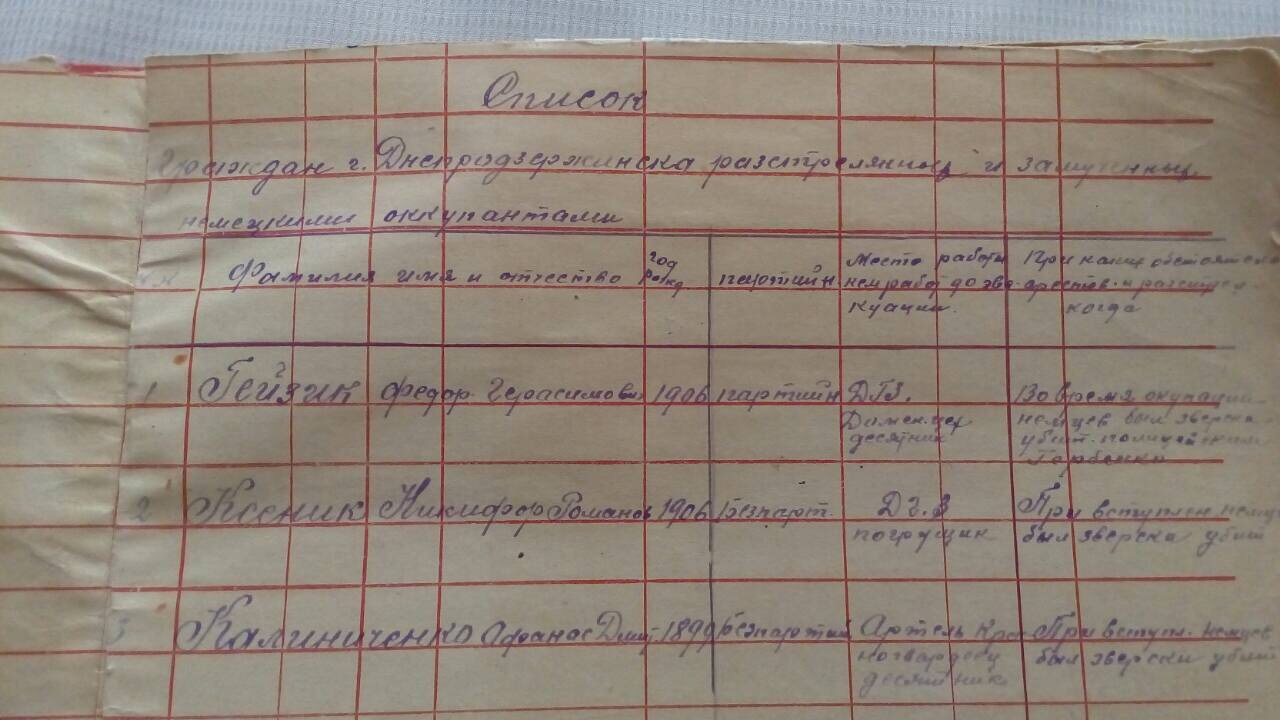 Список
Граждан г. Днепродзержинска разстрелянных и замученных
немецкими оккупантами
Фамилия имя и отчество
год
рожд.
партийн
Место работы
нем работ до эва-
куации.
При каких обстоятел
арестов. и расстрел.
когда
1 Гейзик Федор Герасимов 1906 партийн Д.Г.З.
Домен. цех
десятник
Во время окупации
немцев был зверски
убит полицейским
Горбенко
2 Ксеник Никифор Романов 1906 безпарт. Д.Г.З
погрущик
При вступлен. немц
был зверски убит
3 Калиниченко Афанас Дми 1899 безпартий Артель Крас
ногвардеец
десятник
При вступл. немцев
был зверски убит